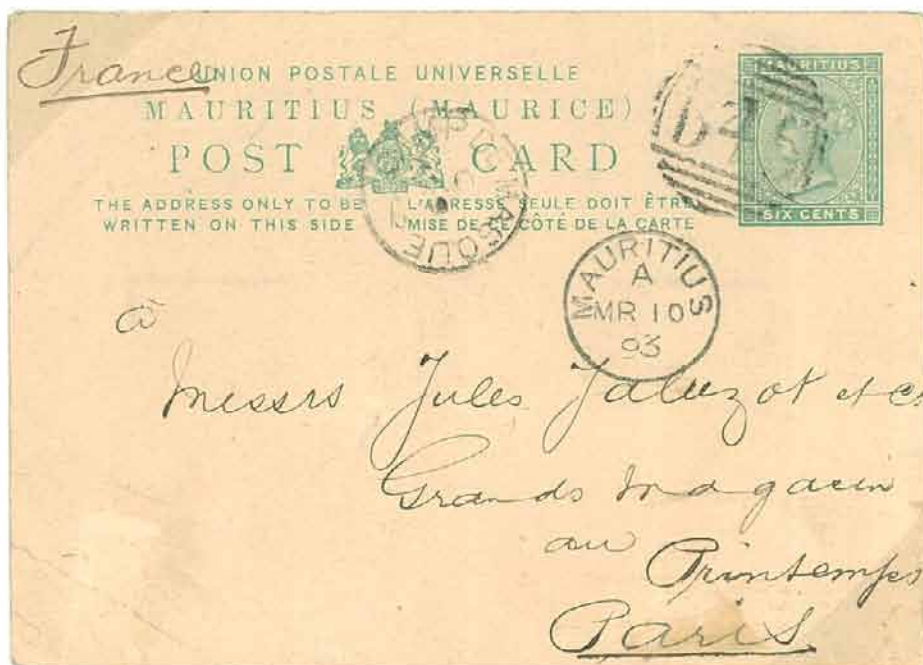 France
UNION POSTALE UNIVERSELLE
MAURITIUS (MAURICE)
POST CARD
THE ADDRESS ONLY TO BE WRITTEN ON THIS SIDE
L'ADRESSE SEULE DOIT ÊTRE MISE DE CE CÔTÉ DE LA CARTE
MAURITIUS
SIX CENTS
MAURITIUS
A
MR 10
93
à
Messrs Jules Jaluzot et
Grands Magacin
au
Printemps
Paris